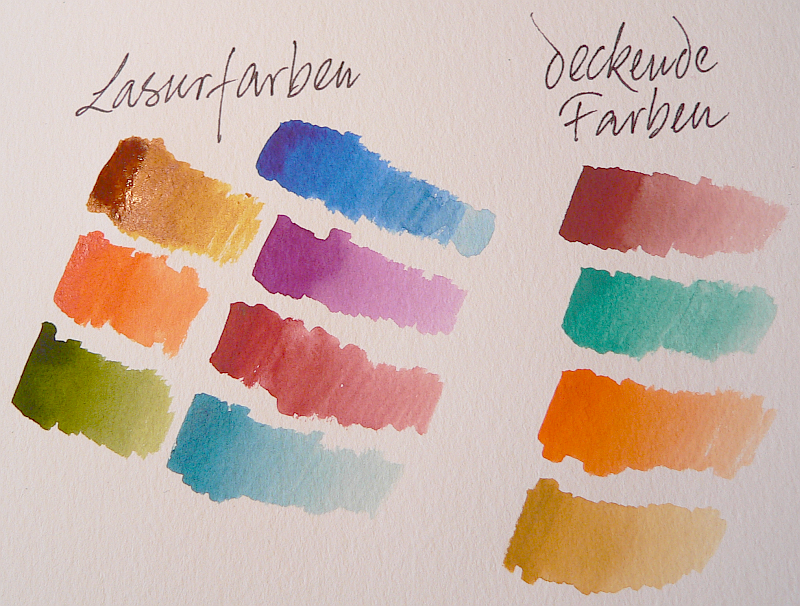 Lasurfarben
deckende
Farben